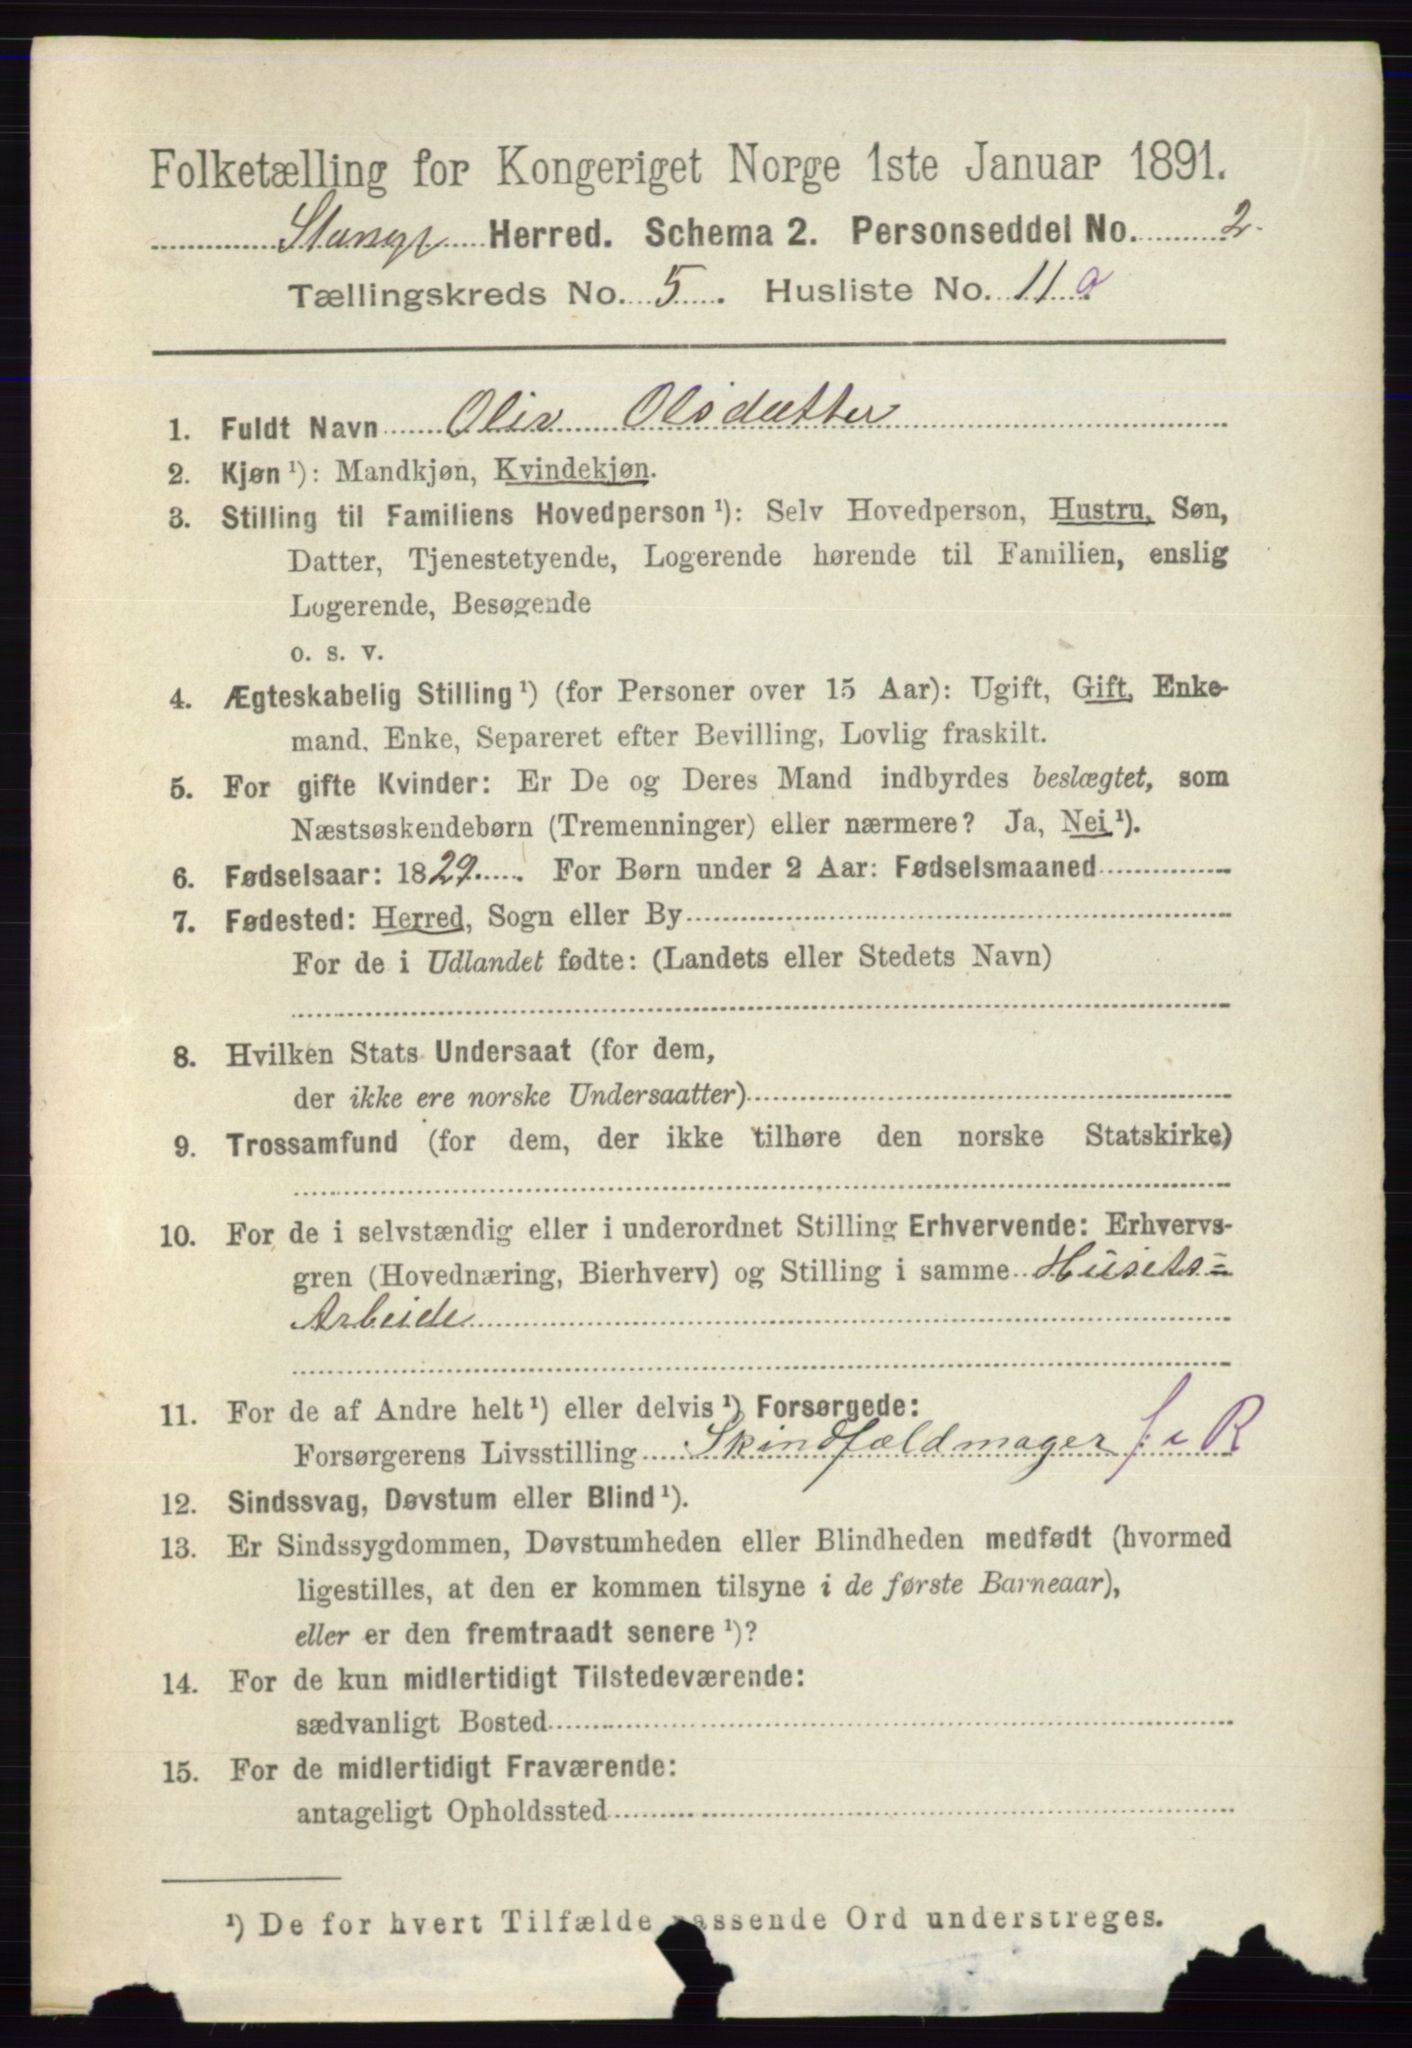 Folketælling for Kongeriget Norge 1ste Januar 1891.
Stange Herred. Schema 2. Personseddel No. 2.
Tællingskreds No. 5. Husliste No. 11 a
1. Fuldt Navn Oliv Olsdatter
2. Kjøn ¹): Mandkjøn, Kvindekjøn.
3. Stilling til Familiens Hovedperson ¹): Selv Hovedperson, Hustru, Søn,
Datter, Tjenestetyende, Logerende hørende til Familien, enslig
Logerende, Besøgende
o. s. v.
4. Ægteskabelig Stilling ¹) (for Personer over 15 Aar): Ugift, Gift, Enke-
mand, Enke, Separeret efter Bevilling, Lovlig fraskilt.
5. For gifte Kvinder: Er De og Deres Mand indbyrdes beslægtet, som
Næstsøskendebørn (Tremenninger) eller nærmere? Ja, Nei ¹).
6. Fødselsaar: 1829. For Børn under 2 Aar: Fødselsmaaned
7. Fødested: Herred, Sogn eller By
For de i Udlandet fødte: (Landets eller Stedets Navn)
8. Hvilken Stats Undersaat (for dem,
der ikke ere norske Undersaatter)
9. Trossamfund (for dem, der ikke tilhøre den norske Statskirke)
10. For de i selvstændig eller i underordnet Stilling Erhvervende: Erhvervs-
gren (Hovednæring, Bierhverv) og Stilling i samme Husets=
Arbeide
11. For de af Andre helt ¹) eller delvis ¹) Forsørgede:
Forsørgerens Livsstilling Skindfældmager f. R
12. Sindssvag, Døvstum eller Blind ¹).
13. Er Sindssygdommen, Døvstumheden eller Blindheden medfødt (hvormed
ligestilles, at den er kommen tilsyne i de første Barneaar),
eller er den fremtraadt senere ¹)?
14. For de kun midlertidigt Tilstedeværende:
sædvanligt Bosted
15. For de midlertidigt Fraværende:
antageligt Opholdssted
¹) De for hvert Tilfælde passende Ord understreges.